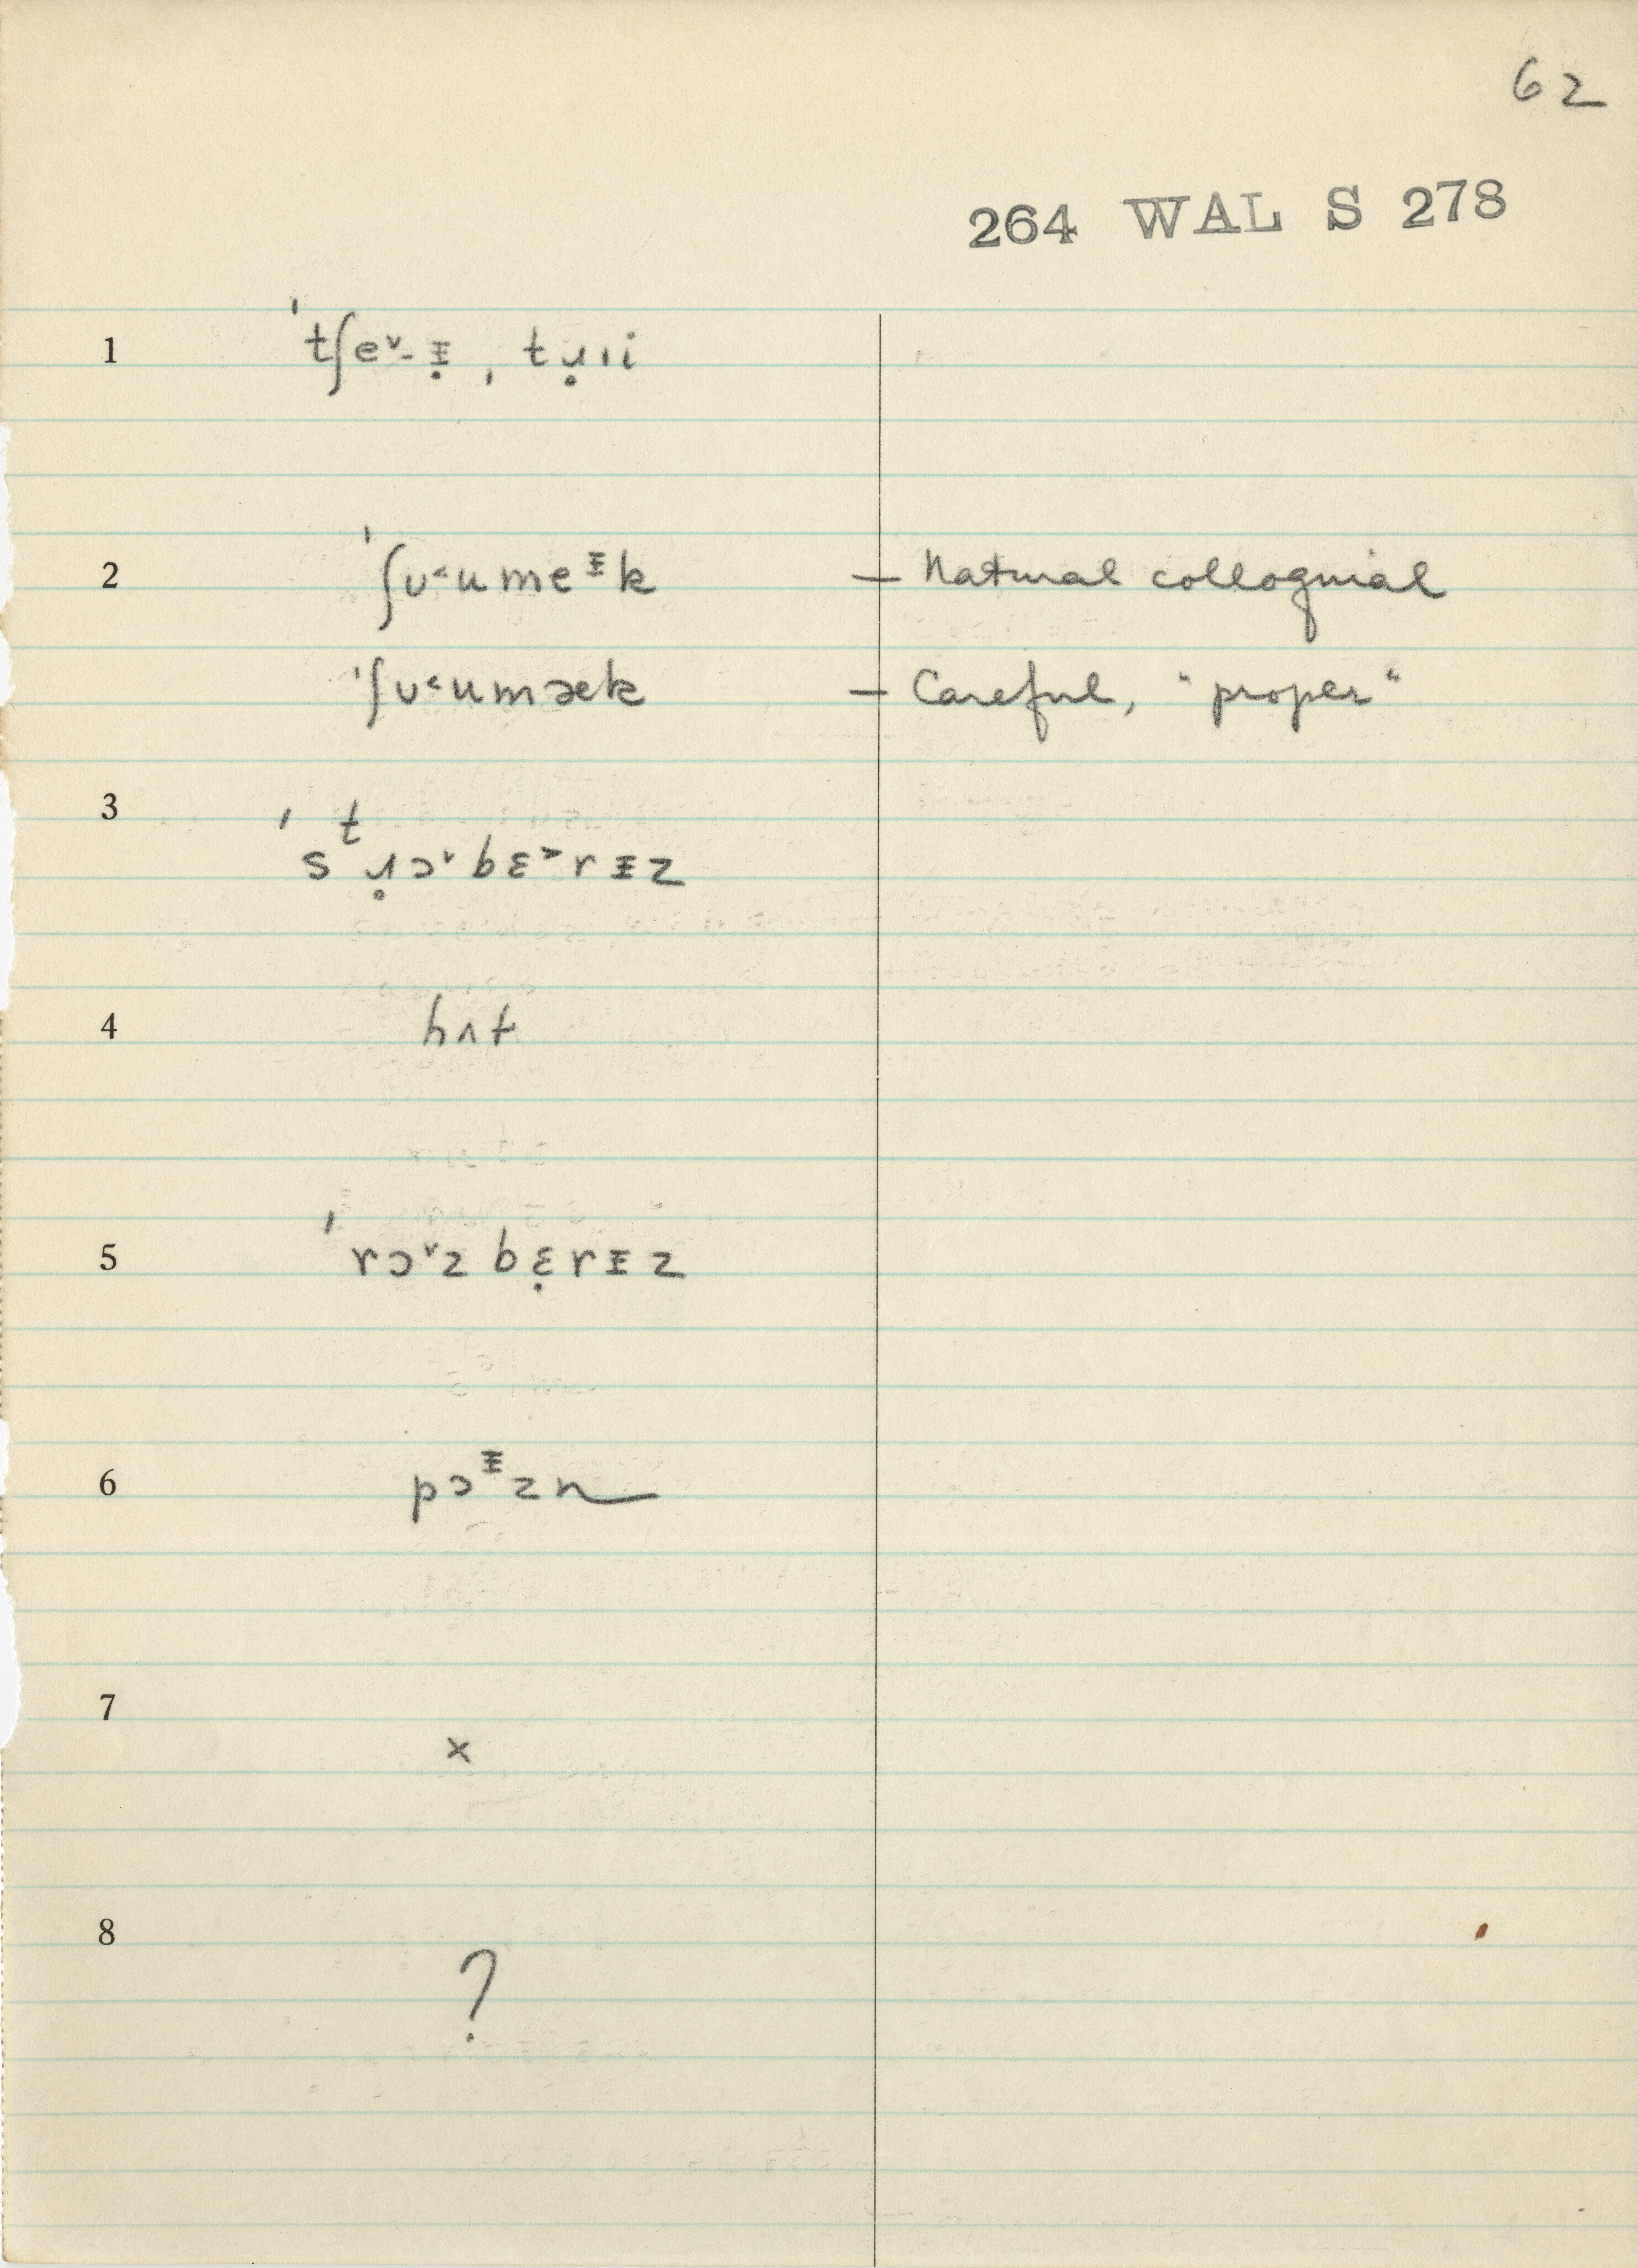 62
264 WAL S 278
1 ˈtʃe˅-ɪ̵̣ ˌtɹ̣ıi
2 ˈʃʊ˂ume ᵻk — Natural colloquial
ˈʃʊ˂umæk — Careful, "proper"
3 ˈsᵗɹ̥ɔ˅bɛ˃rᵻz
4 hʌt
5 ˈrɔ˅zbɛ̣rᵻz
6 pɔᵻzn
7 ×
8 ?